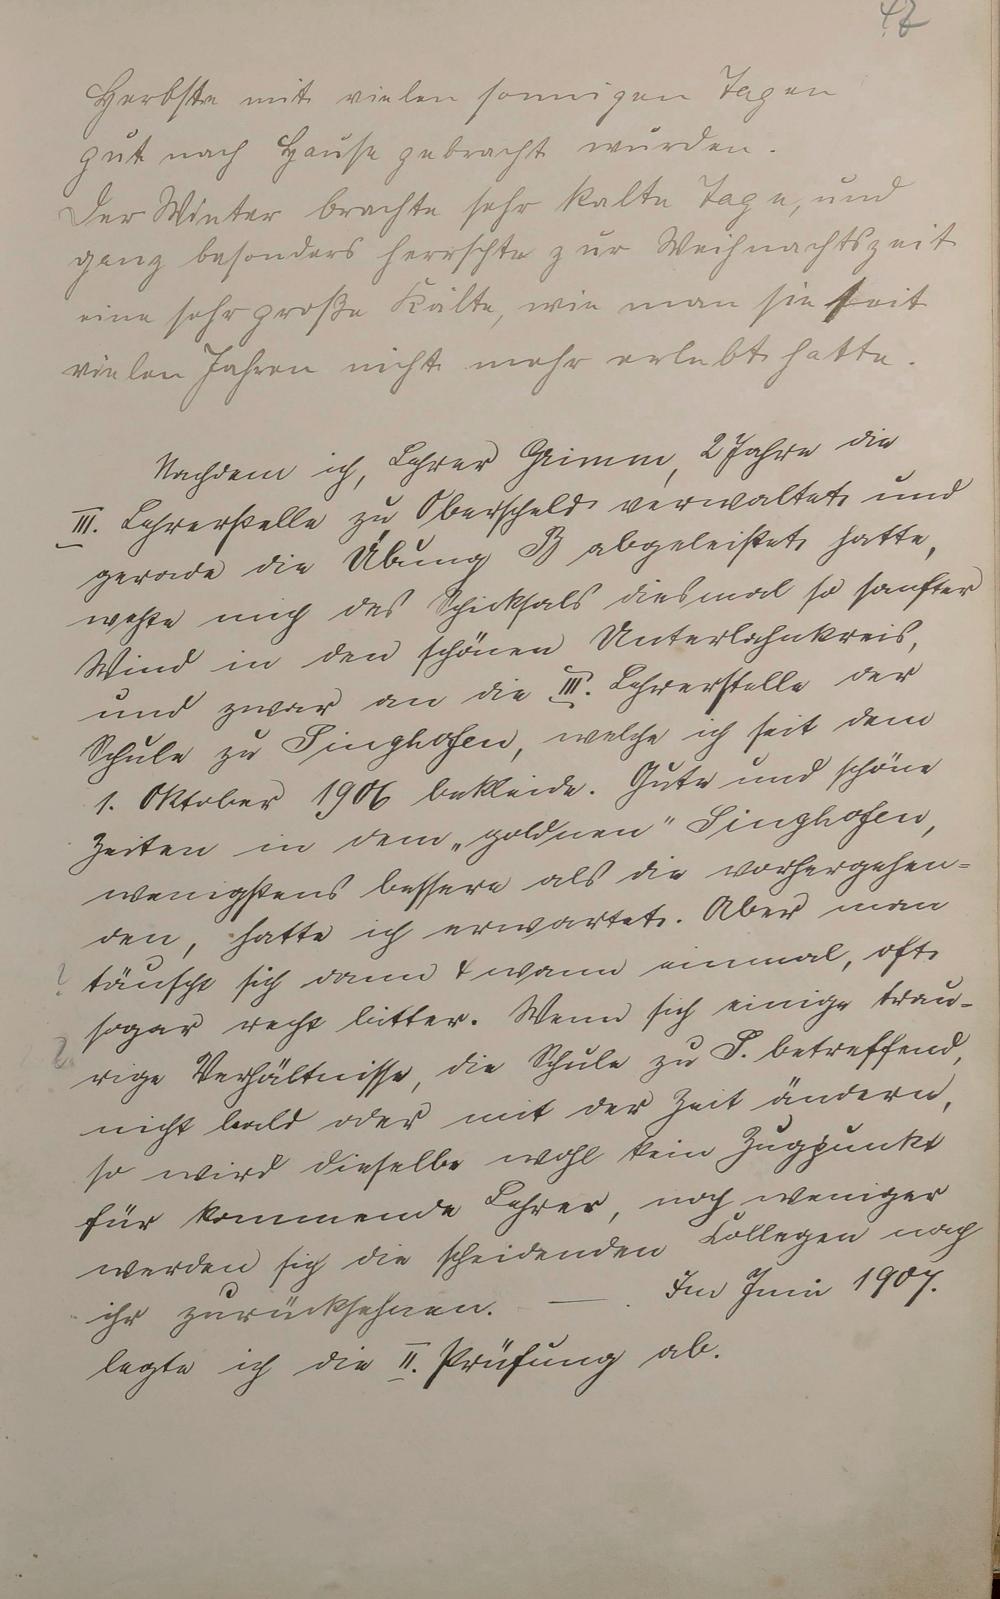 47
Herbste mit vielen sonnigen Tagen
gut nach Hause gebracht wurden.
Der Winter brachte sehr kalte Tage, und
ganz besonders herrschte zur Weihnachtszeit
eine sehr große Kälte, wie man sie seit
vielen Jahren nicht mehr erlebt hatte.
Nachdem ich, Lehrer Grimm, 2 Jahre die
III. Lehrerstelle zu Oberscheld verwaltet und
gerade die Übung B abgeleistet hatte,
wehte mich des Schicksals diesmal so sanfter
Wind in den schönen Unterlahnkreis,
und zwar an die III. Lehrerstelle der
Schule zu Singhofen, welche ich seit dem
1. Oktober 1906 bekleide. Gute und schöne
Zeiten in dem „goldnen" Singhofen,
wenigstens bessere als die vorhergehen=
den, hatte ich erwartet. Aber man
? täuscht sich dann & wann einmal, oft
sogar recht bitter. Wenn sich einige trau=
rige Verhältnisse, die Schule zu S. betreffend,
nicht bald oder mit der Zeit ändern,
so wird dieselbe wohl kein Zugpunkt
für kommende Lehrer, noch weniger
werden sich die scheidenden Collegen nach
ihr zurücksehnen. — . Im Juni 1907.
legte ich die II. Prüfung ab.